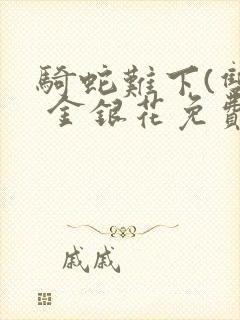 騎蛇難下(雙
金銀花免費
戚戚